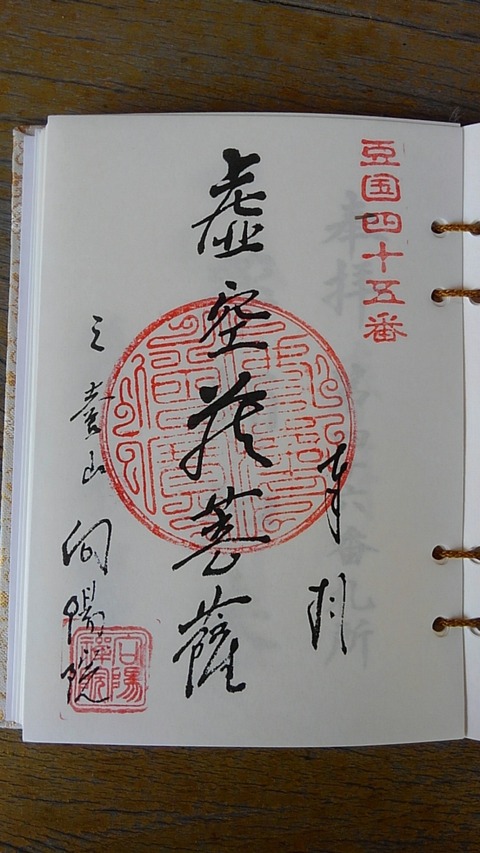 豆国四十五番
奉拝
虚空蔵菩薩
山 向陽院
向陽
禪院